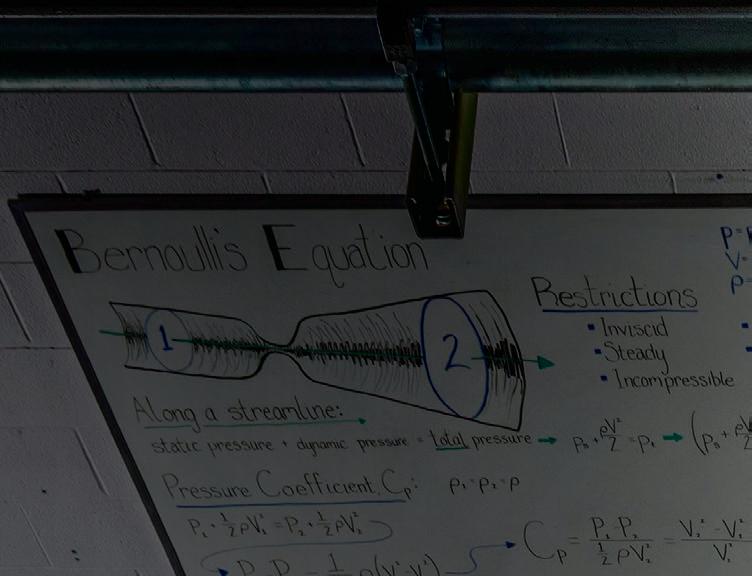 Bernoulli's Equation
P=
V=
ρ=
Restrictions
▪ Inviscid
▪ Steady
▪ Incompressible
1
2
Along a streamline:
static pressure + dynamic pressure = total pressure → Pₛ + ρV²/2 = Pₜ → (Pₛ + ρV²/2
Pressure Coefficient, Cₚ: ρ₁=ρ₂=ρ
P₁ + ½ρV₁² = P₂ + ½ρV₂²
½ρ(V₁²-V₂²)
Cₚ =